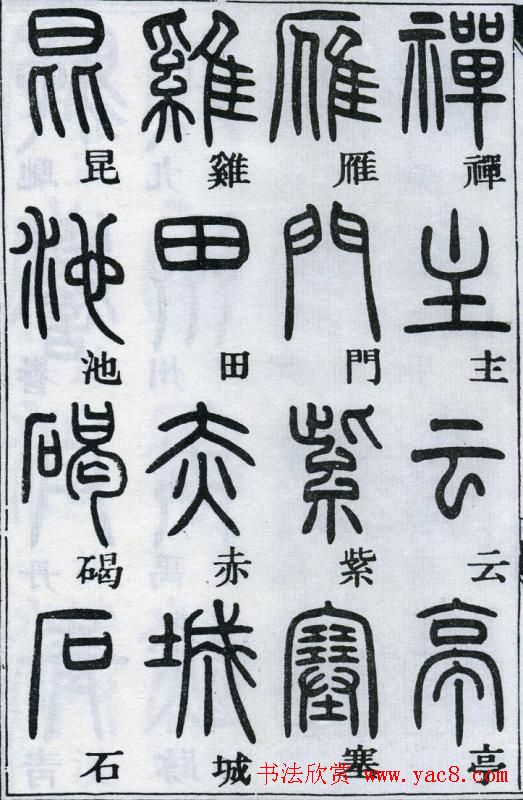 禪主云亭
禪主云亭
雁門紫塞
雁門紫塞
雞田赤城
雞田赤城
昆池碣石
昆池碣石
书法欣赏 www.yac8.com